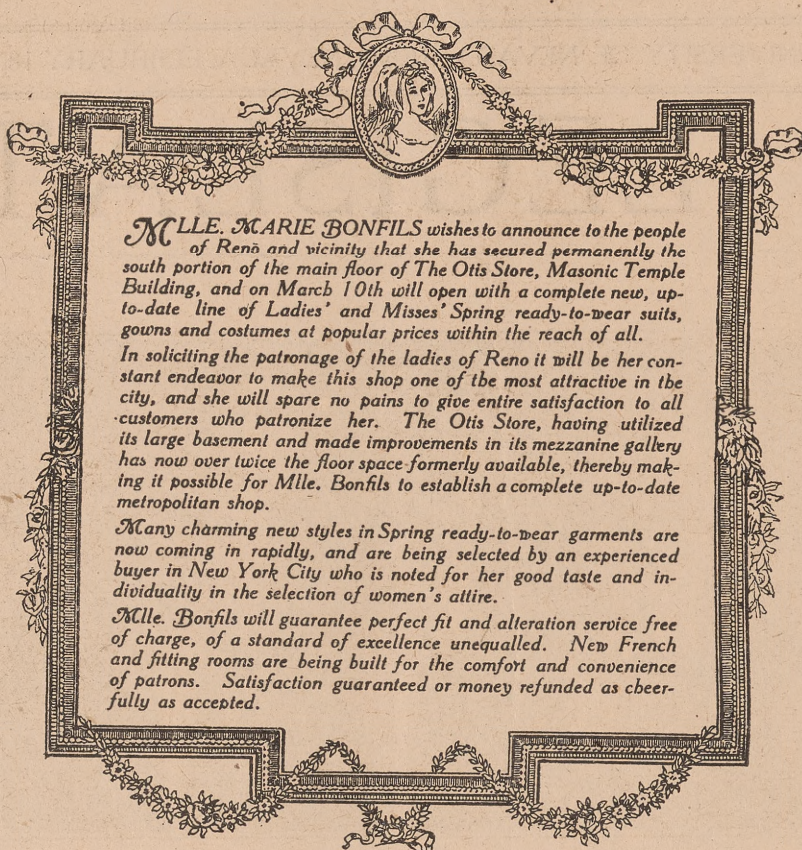 MLLE. MARIE BONFILS wishes to announce to the people
of Reno and vicinity that she has secured permanently the
south portion of the main floor of The Otis Store, Masonic Temple
Building, and on March 10th will open with a complete new, up-
to-date line of Ladies' and Misses' Spring ready-to-wear suits,
gowns and costumes at popular prices within the reach of all.
In soliciting the patronage of the ladies of Reno it will be her con-
stant endeavor to make this shop one of the most attractive in the
city, and she will spare no pains to give entire satisfaction to all
customers who patronize her. The Otis Store, having utilized
its large basement and made improvements in its mezzanine gallery
has now over twice the floor space formerly available, thereby mak-
ing it possible for Mlle. Bonfils to establish a complete up-to-date
metropolitan shop.
Many charming new styles in Spring ready-to-wear garments are
now coming in rapidly, and are being selected by an experienced
buyer in New York City who is noted for her good taste and in-
dividuality in the selection of women's attire.
Mlle. Bonfils will guarantee perfect fit and alteration service free
of charge, of a standard of excellence unequalled. New French
and fitting rooms are being built for the comfort and convenience
of patrons. Satisfaction guaranteed or money refunded as cheer-
fully as accepted.